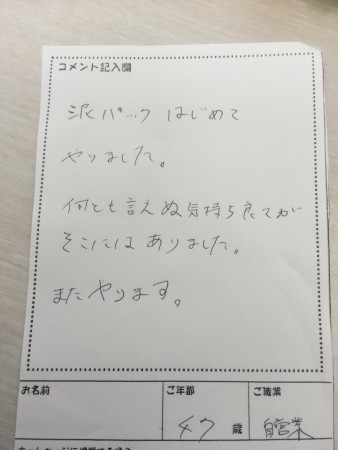 コメント記入欄
泥パック はじめて
やりました。
何とも言えぬ気持ち良さが
そこにはありました。
またやります。
お名前 ご年齢 ご職業
47歳 自営業